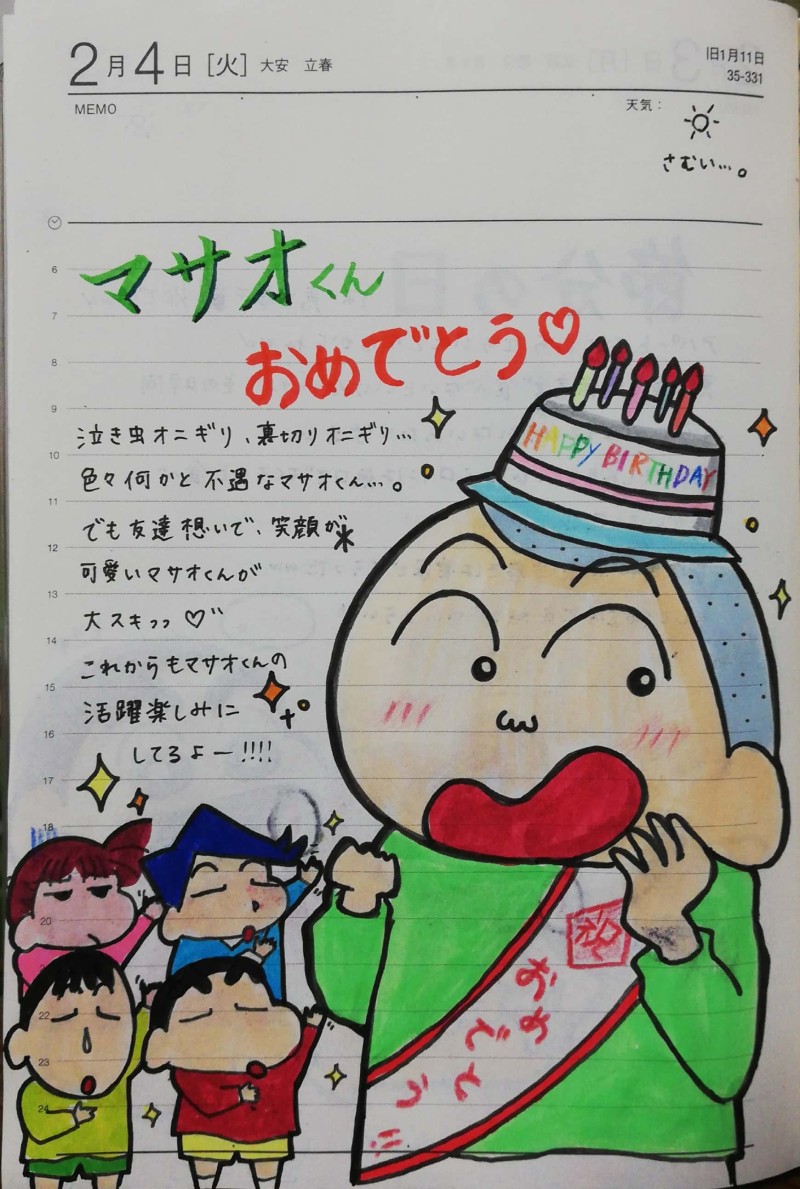 2月4日[火] 大安 立春
旧1月11日
35-331
MEMO
天気：
さむい…。
マサオくん
おめでとう♡
泣き虫オニギリ、裏切りオニギリ…
色々何かと不遇なマサオくん…。
でも友達想いで、笑顔が
可愛いマサオくんが
大スキっっ♡
これからもマサオくんの
活躍楽しみに
してるよー!!!!
HAPPY BIRTHDAY
祝
おめでとう!!
6
7
8
9
10
11
12
13
14
15
16
17
18
20
22
23
24